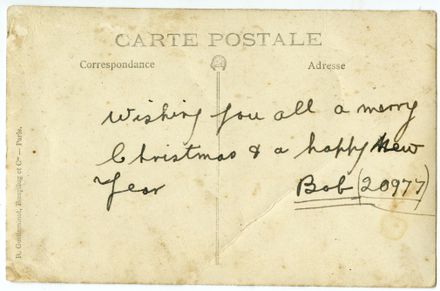 CARTE POSTALE
Correspondance
Adresse
Wishing you all a merry
Christmas & a happy New
Year
Bob (20977)
R. Guilleminot, Bœspflug et Cie — Paris.